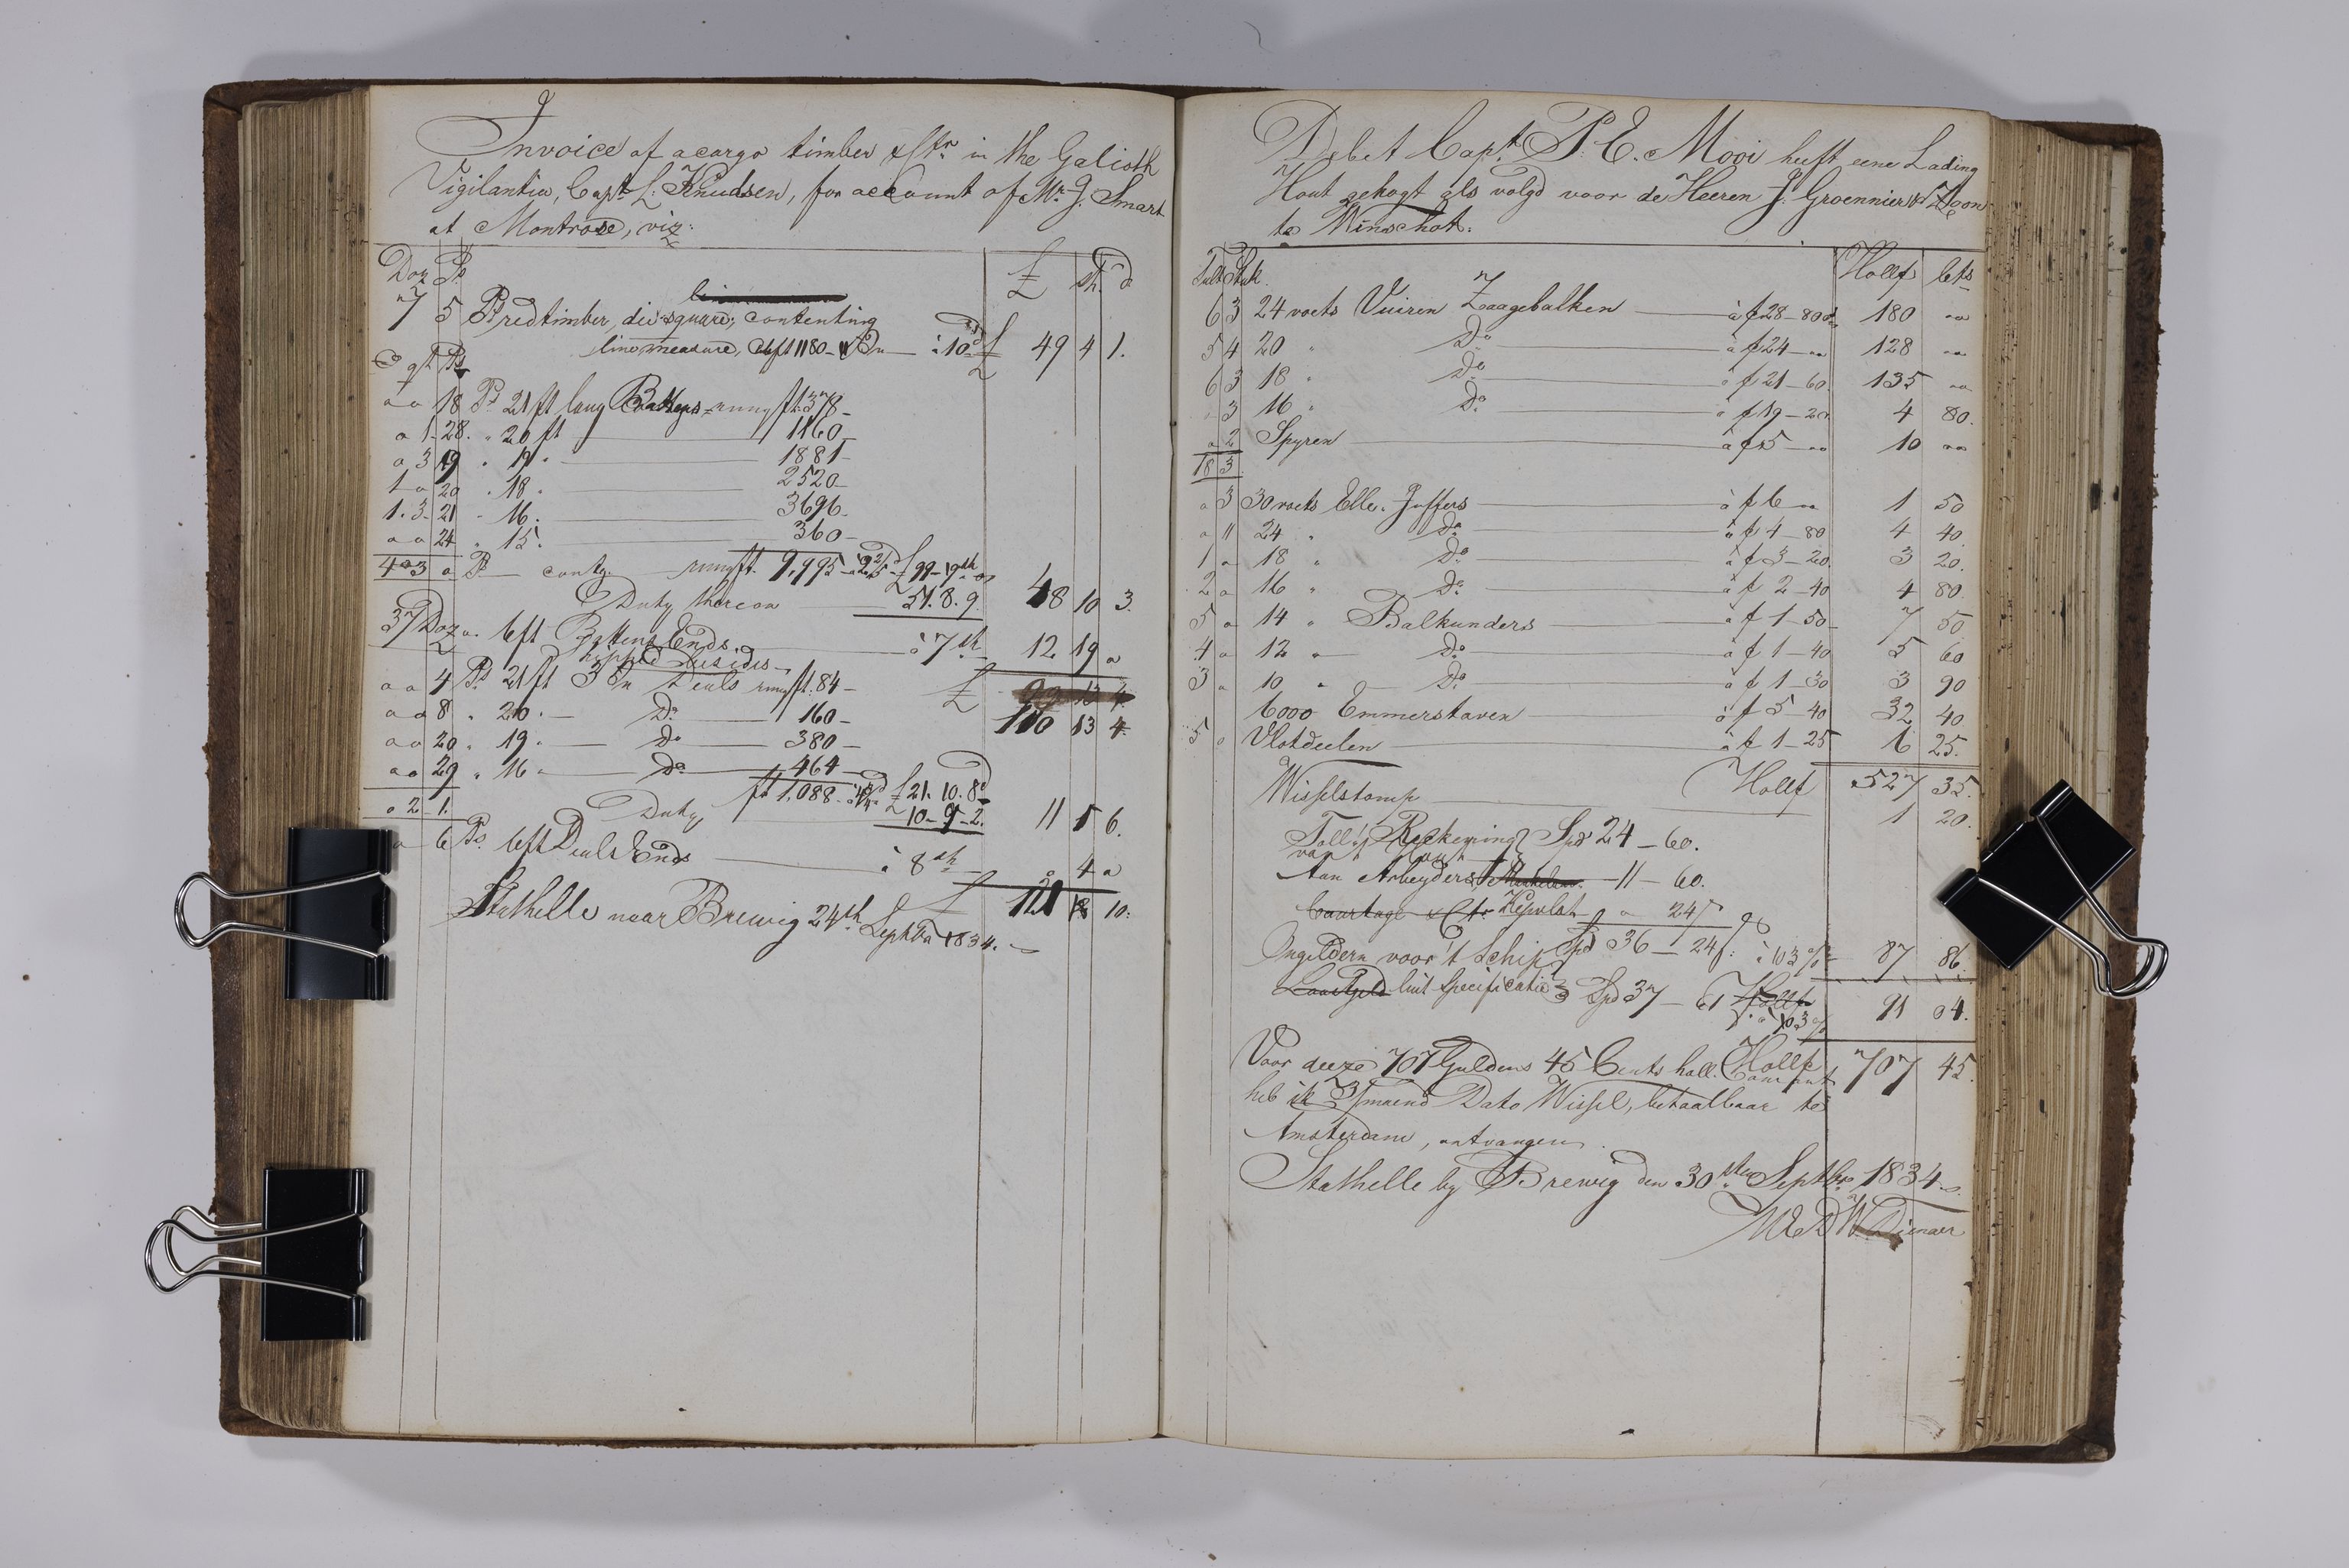 Invoice of a cargo timber & Ctr. in the Galioth
Vigilantia, Capt. L. Knudsen, for account of Mr. J. Smart
at Montrose, viz:
Doz Ps. £ sh. d
7 5 Ps redtimber, die square, contenting
line measure, Cubft 1180 à 10d £ 49 4 1.
C qt Ps
a a 18 Ps 21 ft long Battens rungft. 378-
a 1 28. " 20 ft 1160-
a 3 19 " 19 " 1881-
1 a 20 " 18 " 2520-
1. 3 21 " 16. 3696-
a a 24 " 15. 360-
4 3 a Ps contg. rungft. 9,995 £ 99-19sh
Duty thereon 51. 8. 9. 48 10 3.
37 Doz a. 6ft Battens Ends. à 7sh 12 19 a
a a 4 Ps 21 ft 3 In Deals rungft. 84- £
110 13 4
a a 8 " 20. Do 160-
a a 20 " 19. do 380-
a a 29 " 16 do 464-
ft 1,088. £ 21. 10. 8d
a 2 1. Duty 10-9-2. 11 1 6.
a 6 Ps. 6ft Deals Ends à 8sh a 4 a
£ 121 10.
Stathelle near Brewig 24th Septbr 1834.
Debet Capt. P. E. Mooi heeft eene Lading
Hout gekogt als volgd voor de Heeren J. Groennier & Zoon
te Winschot:
Tult Stuk. Hollf Cts
6 3 24 voets Vuiren Zaagebalken à f 28-80 180 "
5 4 20 " Do à f 24- " 128 "
6 3 18 " Do à f 21-60 135 "
" 3 16 " Do à f 19-20 4 80.
a 2 Spyren à f 5- " 10 "
18 3
a 3 30 voets Elle. Juffers à f 6 " 1 50
a 11 24 " Do à f 4-80 4 40.
1 a 18 " Do à f 3-20. 3 20.
2 a 16 " Do à f 2-40 4 80.
5 a 14 " Balkunders à f 1-50 7 50
4 a 12 " Do à f 1-40 5 60
3 a 10 " Do à f 1-30 3 90
6000 Emmerstaven à f 5-40 32 40.
5 a Vlotdeelen à f 1-25 6 25.
Hollf 527 35.
Wisselstemp 1 20.
Toll Rekening Spd 24-60.
van Hout
Aan Arbeyders 11-60.
Courtage & Ct. a 24
Ongeldern voor 't Schip Spd 36-24 f: à 103% 87 86.
Lastgeld luit specificatie Spd 37-61 Hollf
à 103% 91 04.
Hollf 707 45.
Voor deeze 707 Guldens 45 Cents holl. Courant
heb ik 3/maend Dato Wissel, betaalbaar te
Amsterdam, ontvangen.
Stathelle by Brewig den 30sten Septbr 1834.